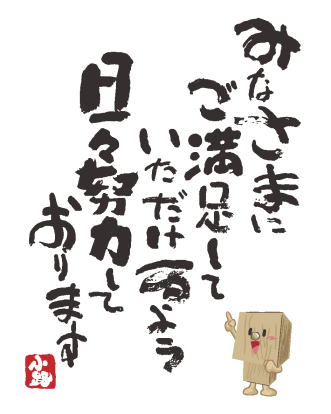 みなさまに
ご満足して
いただけるよう
日々努力して
おります
小路